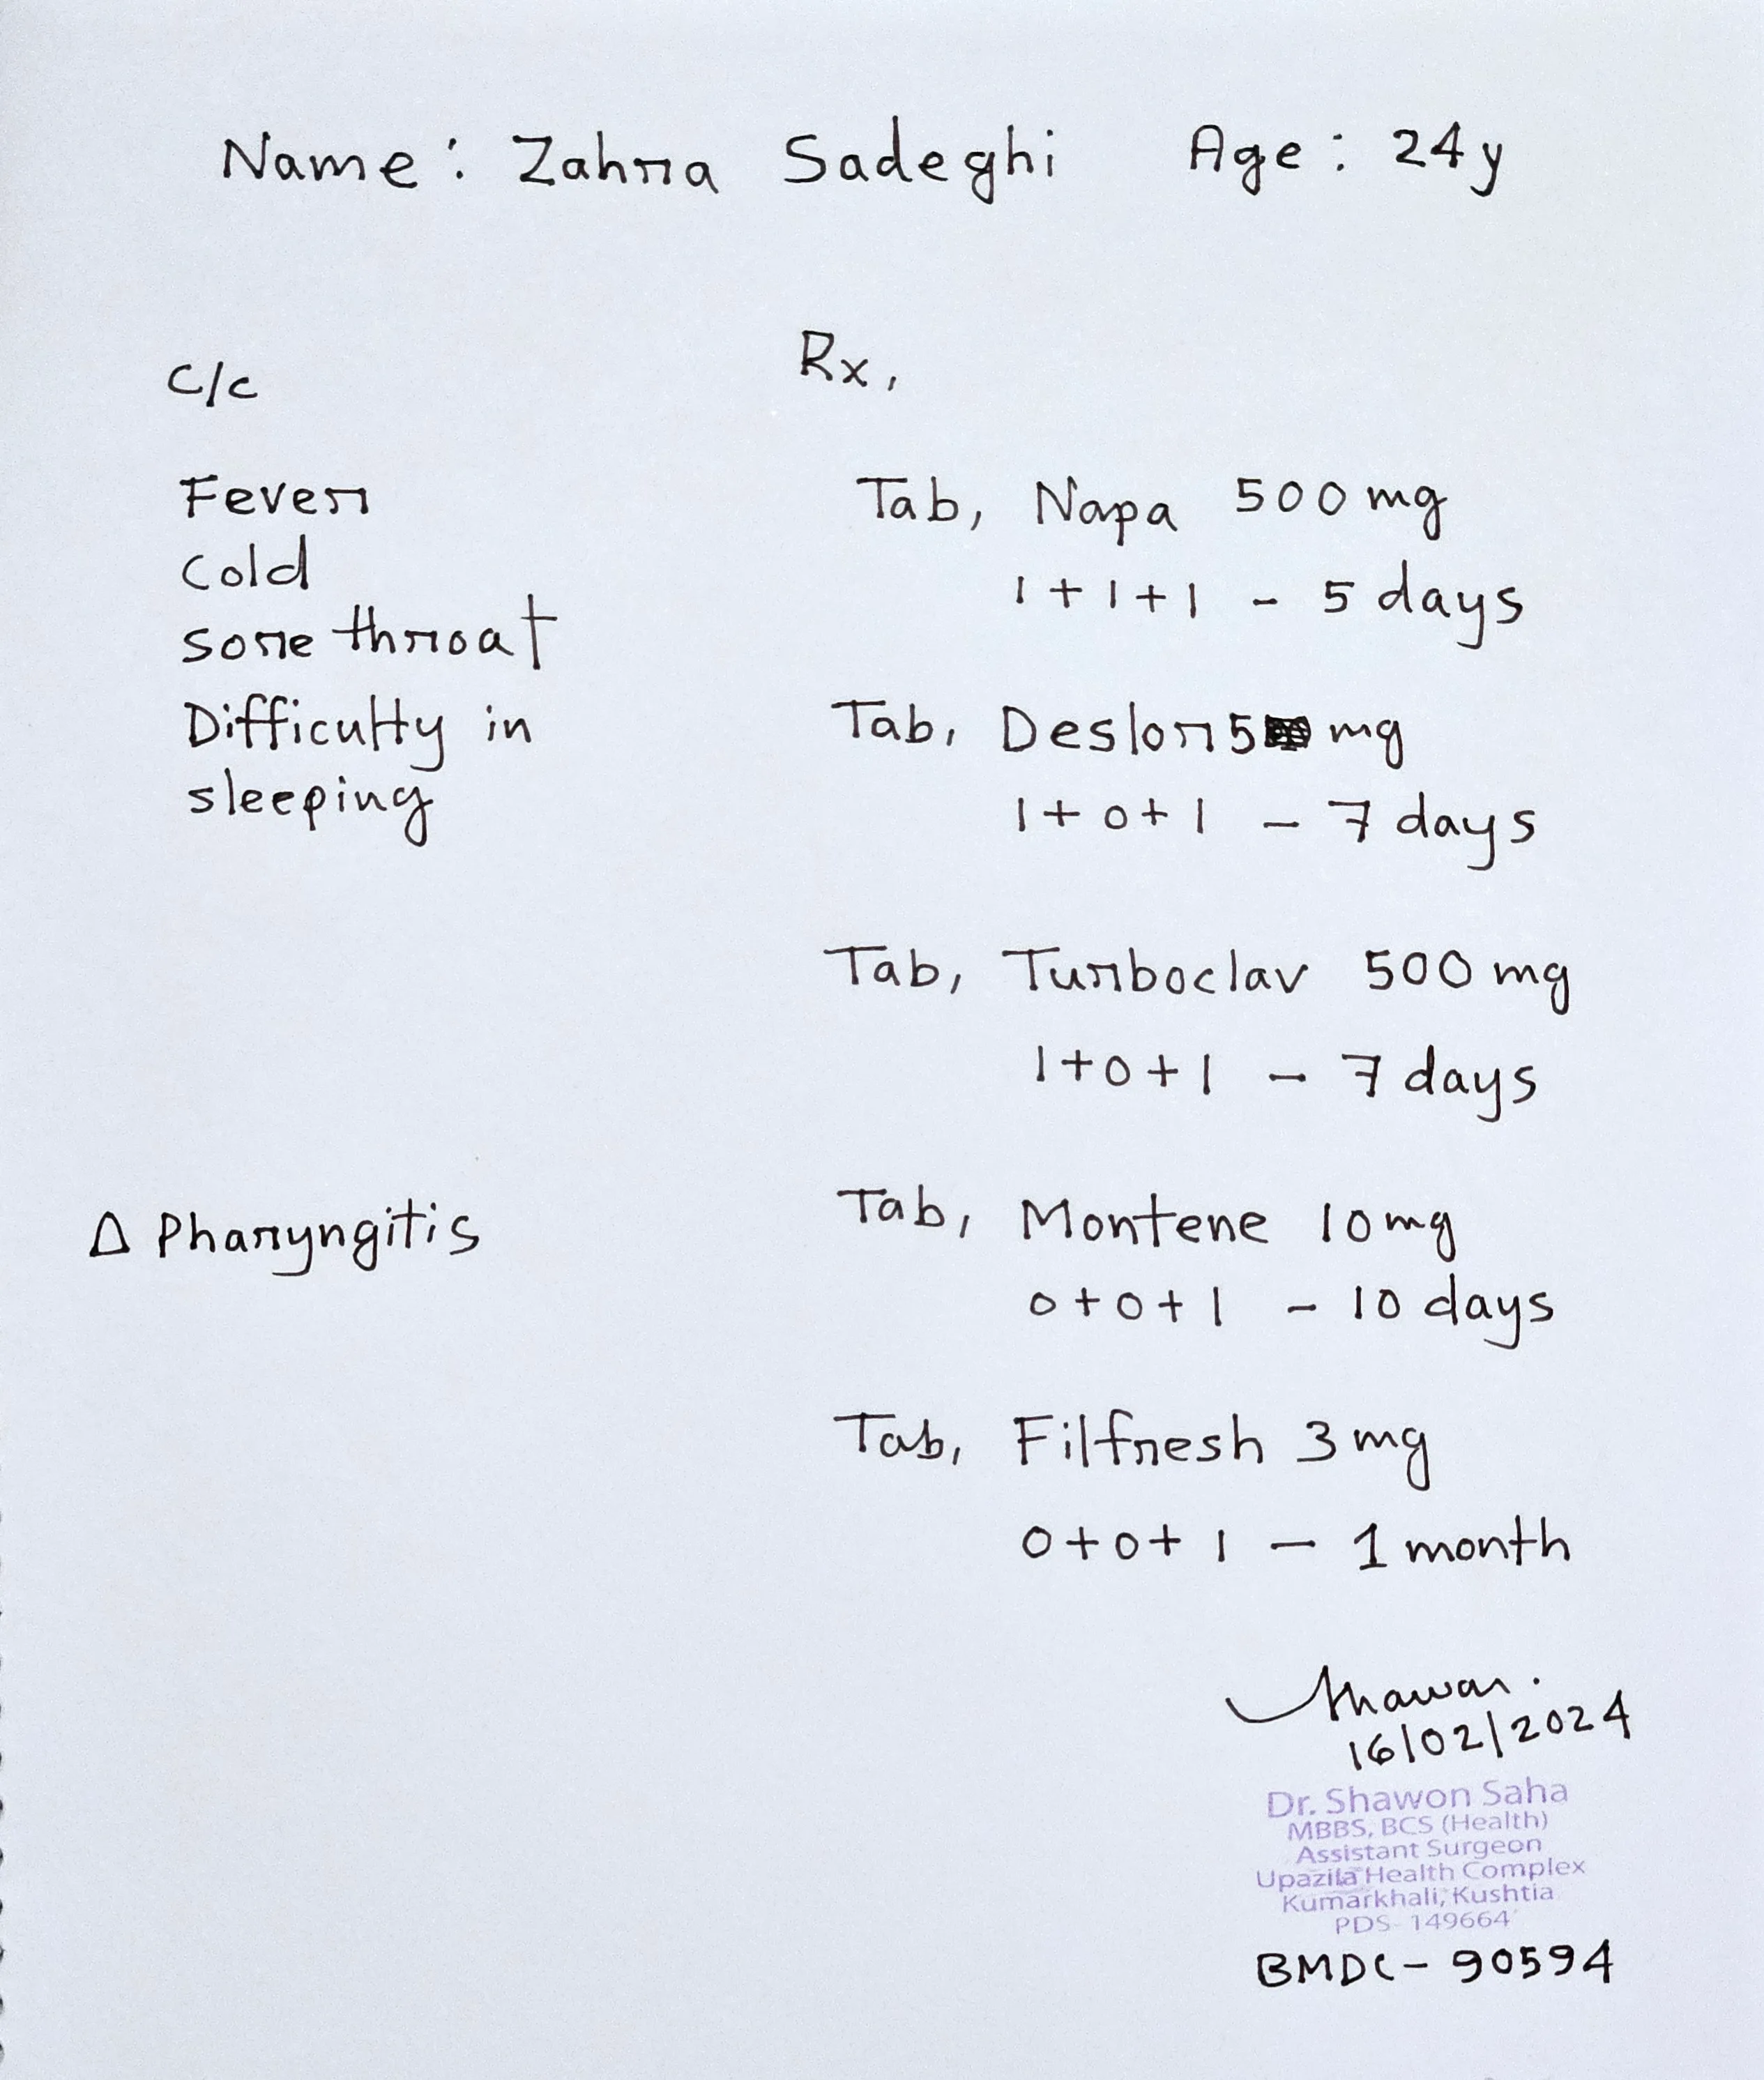 Name: Zahra Sadeghi Age: 24y
C/c
Fever
Cold
sore throat
Difficulty in
sleeping
Δ Pharyngitis
Rx,
Tab, Napa 500 mg
1+1+1 - 5 days
Tab, Deslor 5 mg
1+0+1 - 7 days
Tab, Turboclav 500 mg
1+0+1 - 7 days
Tab, Montene 10 mg
0+0+1 - 10 days
Tab, Filfresh 3 mg
0+0+1 - 1 month
Shawon.
16/02/2024
Dr. Shawon Saha
MBBS, BCS (Health)
Assistant Surgeon
Upazila Health Complex
Kumarkhali, Kushtia
PDS- 149664
BMDC - 90594